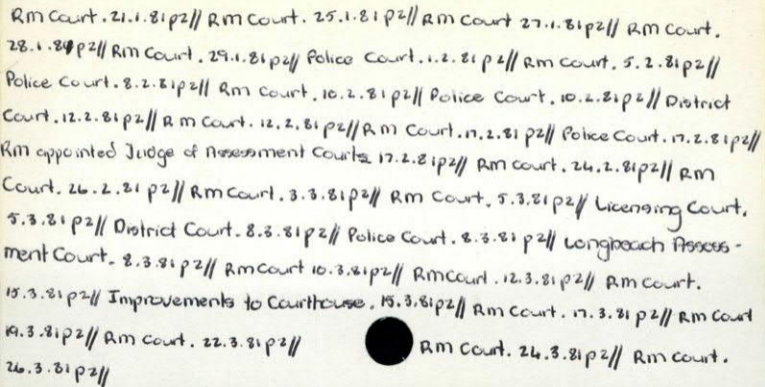 Rm Court. 21.1.81p2// Rm Court. 25.1.81p2// Rm Court 27.1.81p2// Rm Court.
28.1.81p2// Rm Court. 29.1.81p2// Police Court. 1.2.81p2// Rm Court. 5.2.81p2//
Police Court. 8.2.81p2// Rm Court. 10.2.81p2// Police Court. 10.2.81p2// District
Court. 12.2.81p2// Rm Court. 12.2.81p2// Rm Court. 17.2.81p2// Police Court. 17.2.81p2//
Rm appointed Judge of Assessment Courts 17.2.81p2// Rm Court. 24.2.81p2// Rm
Court. 26.2.81p2// Rm Court. 3.3.81p2// Rm Court. 5.3.81p2// Licensing Court.
5.3.81p2// District Court. 8.3.81p2// Police Court. 8.3.81p2// Longbeach Assess-
ment Court. 8.3.81p2// Rm Court 10.3.81p2// Rm Court. 12.3.81p2// Rm Court.
15.3.81p2// Improvements to Courthouse. 15.3.81p2// Rm Court. 17.3.81p2// Rm Court
19.3.81p2// Rm Court. 22.3.81p2// Rm Court. 24.3.81p2// Rm Court.
26.3.81p2//